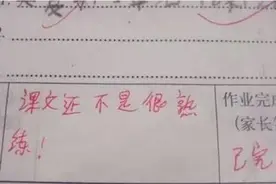 课文还不是很熟
练！
作业完成
（家长
已完